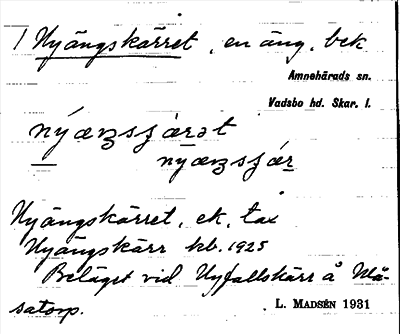 1 Nyängskärret, en äng, bek
Amnehärads sn.
Vadsbo hd. Skar. l.
Nyängskärret, ek, tax
Nyängskärr kb. 1925
Beläget vid Nyfallskärr å Må-
satorp.
L. MADSÉN 1931